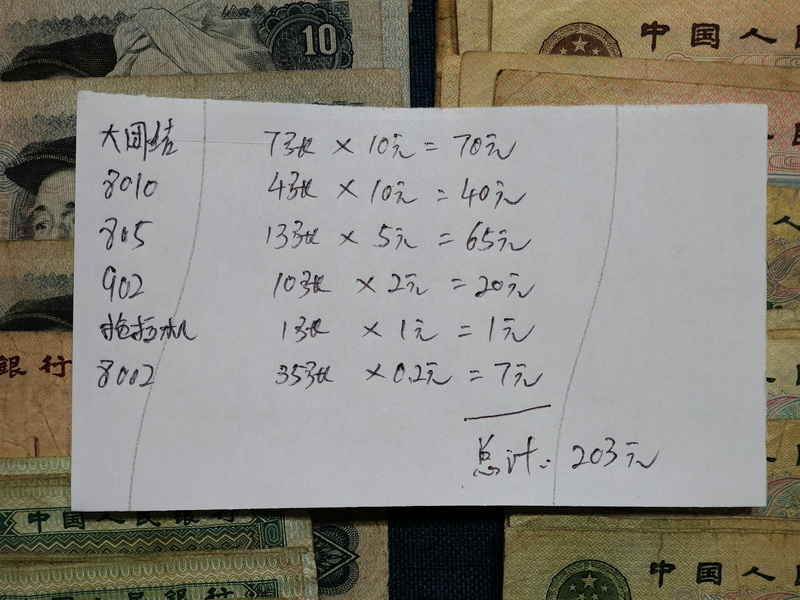 10
中国人
大团结 7张 × 10元 = 70元
8010 4张 × 10元 = 40元
805 13张 × 5元 = 65元
902 10张 × 2元 = 20元
拖拉机 1张 × 1元 = 1元
8002 35张 × 0.2元 = 7元
总计: 203元
銀行
中国人民银行
中国人